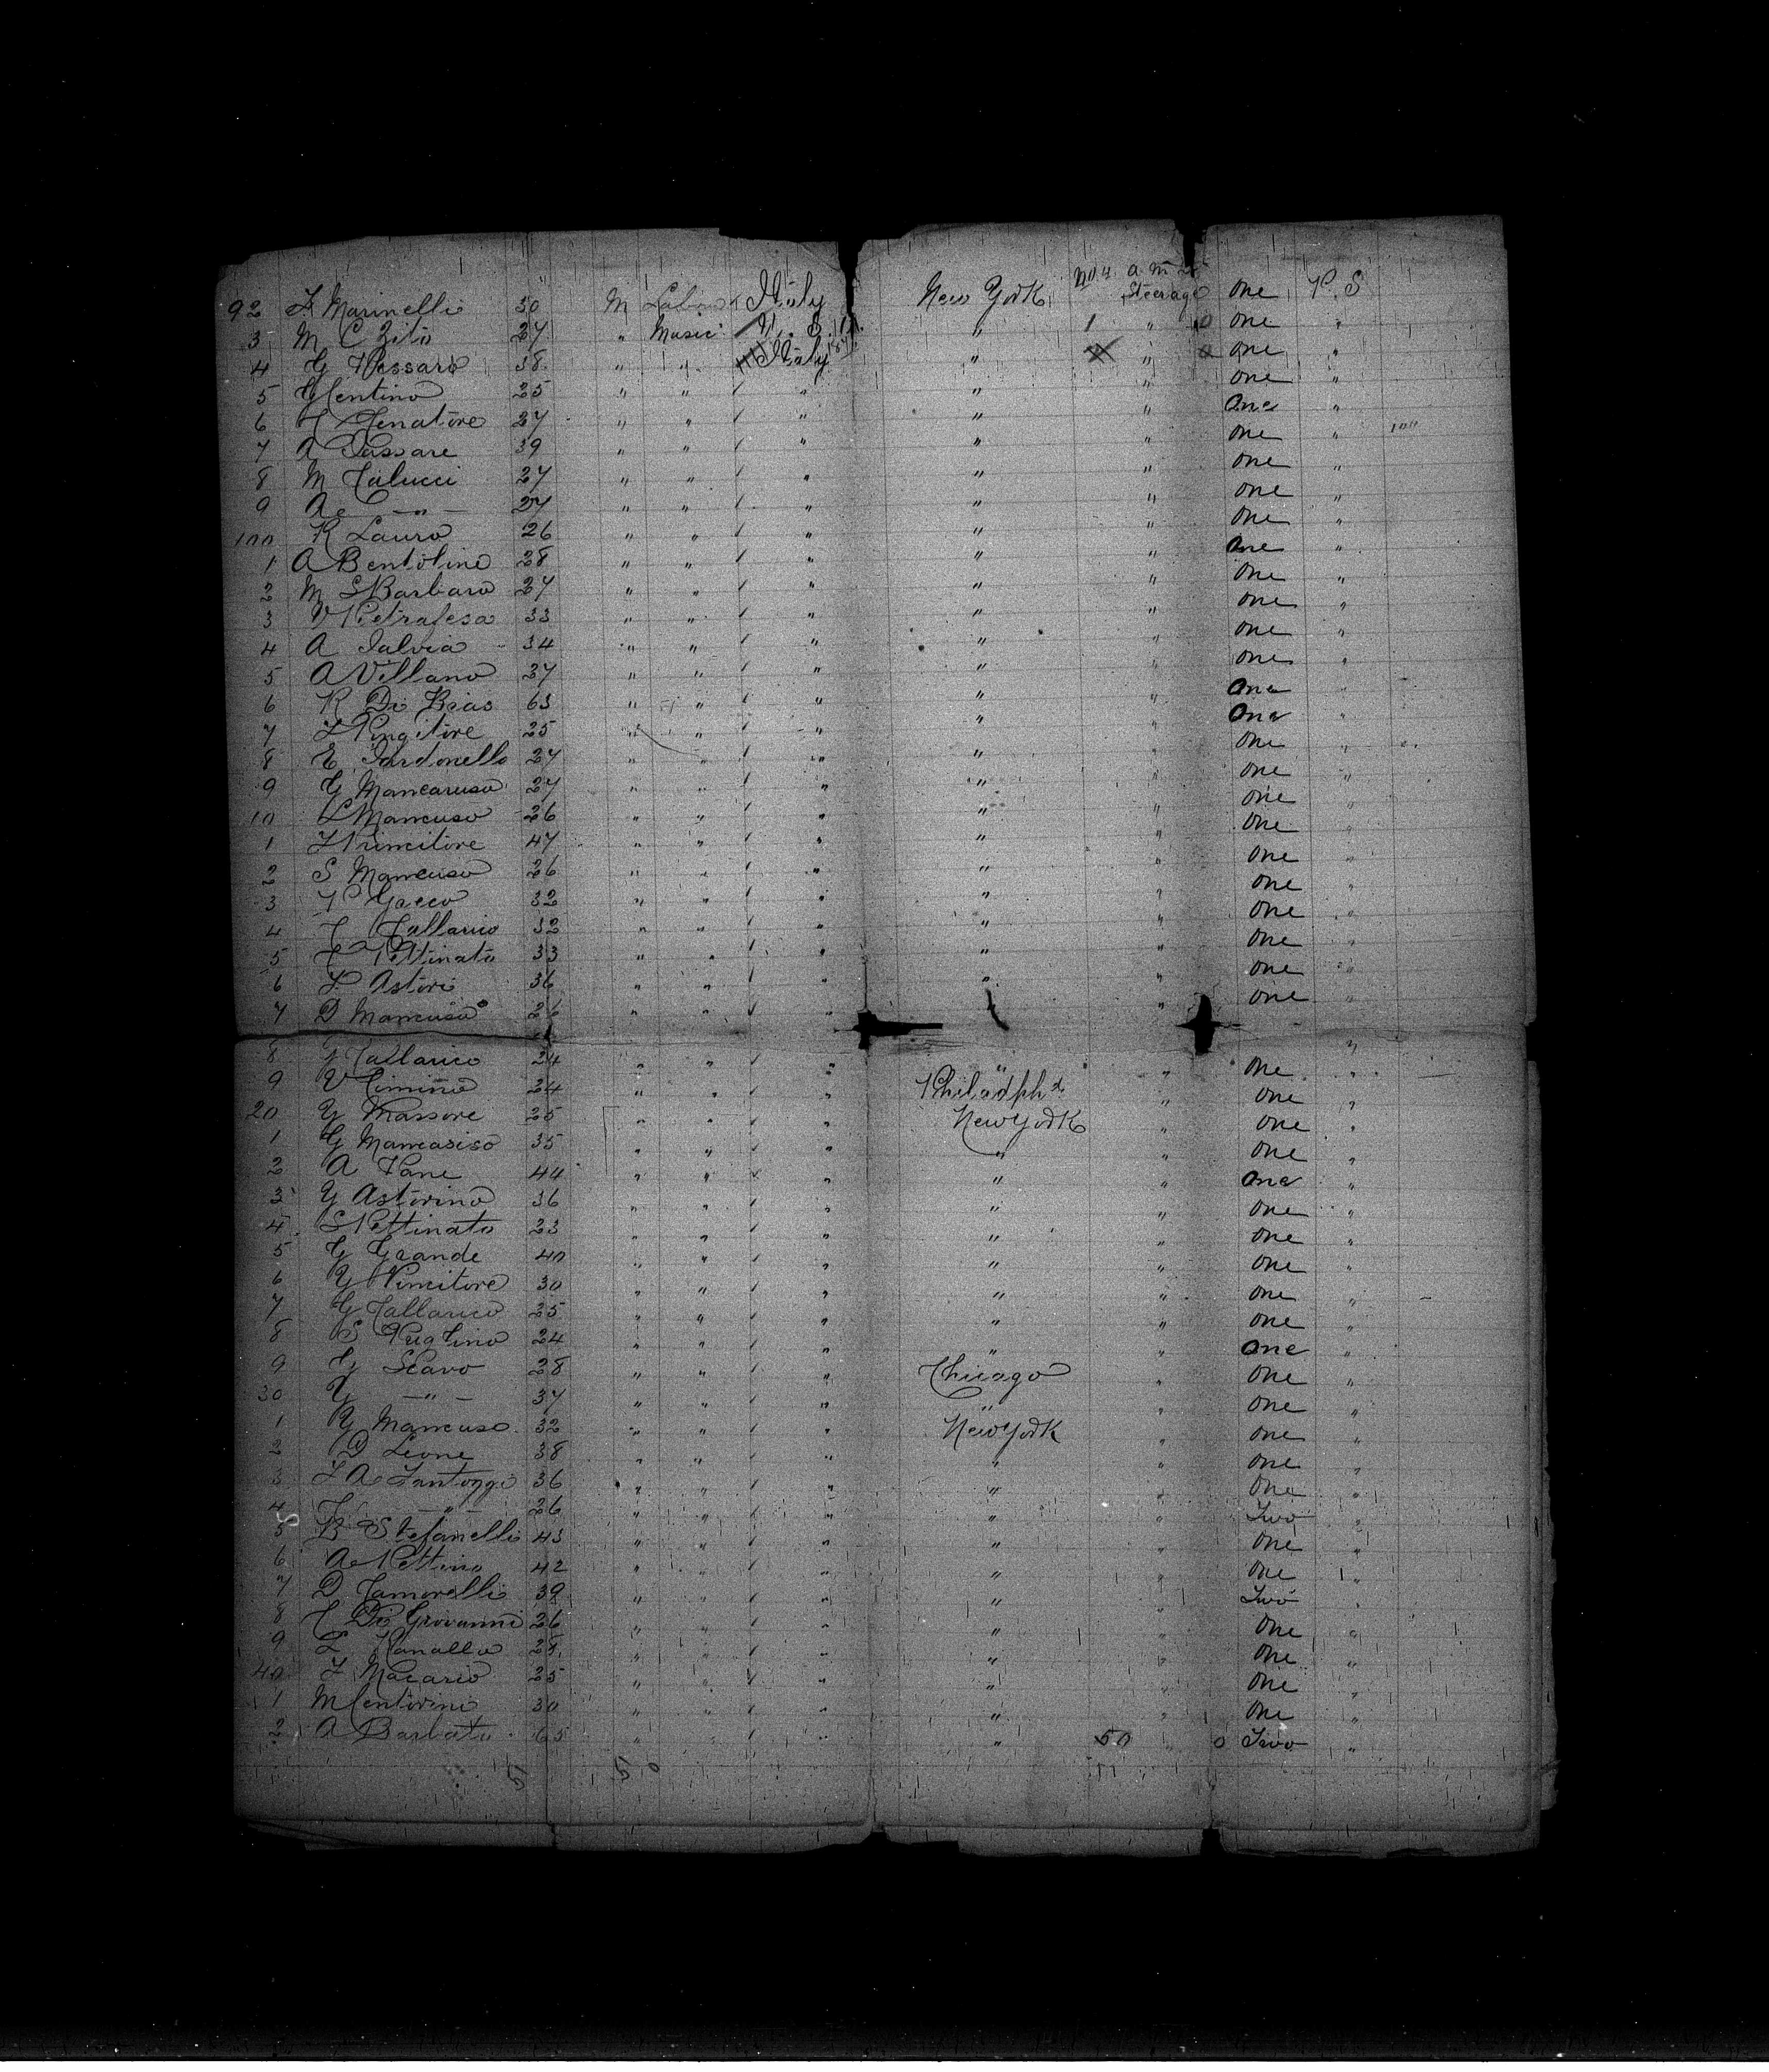 92 F Marinelli 50 M Labor Italy New York No 4 a m 2 Steerage One P. S
3 M C Zito 27 " Music U. S. " 1 " 0 One "
4 G Passaro 38 " " Italy " " One "
5 G Centino 25 " " " " " One "
6 C Senatore 27 " " " " " One "
7 A Passare 39 " " " " " One " 100
8 M Colucci 27 " " " " " One "
9 A — " — 27 " " " " " One "
100 R Lauro 26 " " " " " One "
1 A Bentolino 28 " " " " " One "
2 M S Barbaro 27 " " " " " One "
3 V Pietrafesa 33 " " " " " One "
4 A Salvia 34 " " " " " One "
5 A Villano 37 " " " " " One "
6 R Di Bias 63 " " " " " One "
7 F Pingitore 25 " " " " " One "
8 E 27 " " " " " One "
9 G Mancaruso 27 " " " " " One "
10 L Mancuso 26 " " " " " One "
1 47 " " " " " One "
2 S Mancuso 26 " " " " " One "
3 P Greco 32 " " " " " One "
4 C Tallarico 32 " " " " " One "
5 C Pettinato 33 " " " " " One "
6 F Astori 36 " " " " " One "
7 D Mancuso 26 " " " " " One "
8 G Tallarico 24 " " " " " One "
9 V Cimino 24 " " " Philadph a " One "
20 G Massore 25 " " " New York " One "
1 G Mancasiso 35 " " " " " One "
2 A Pane 44 " " " " " One "
3 G Astorino 36 " " " " " One "
4 S Pettinato 23 " " " " " One "
5 G Grande 40 " " " " " One "
6 G Pincitore 30 " " " " " One "
7 G Tallarico 25 " " " " " One "
8 S Puglino 24 " " " " " One "
9 G Scavo 28 " " " Chicago " One "
30 G — " — 37 " " " " " One "
1 G Mancuso 32 " " " New York " One "
2 D Leone 38 " " " " " One "
3 F A 36 " " " " " One "
4 — " — 26 " " " " " Two "
5 B Stefanelli 43 " " " " " One "
6 A Pettino 42 " " " " " One "
7 D Camorelli 38 " " " " " Two "
8 C Di Giovanni 26 " " " " " One "
9 28 " " " " " One "
40 F Macario 25 " " " " " One "
1 M Centorino 30 " " " " " One "
2 A Barbato 65 " " " " 50 " 0 Two "
5 0